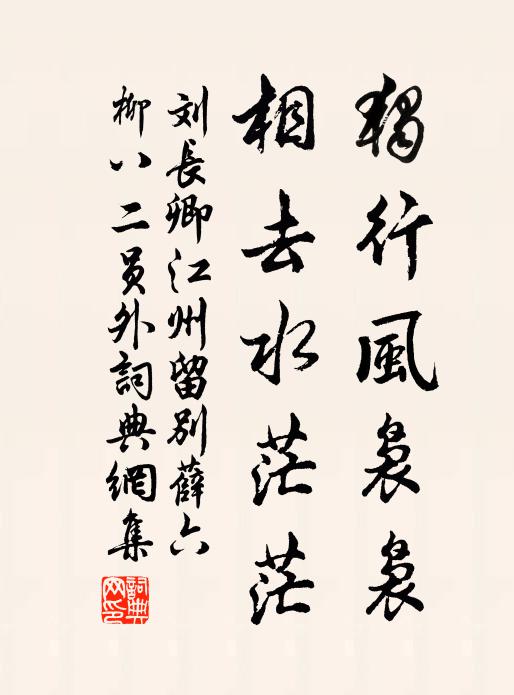 獨行風裊裊
相去水茫茫
刘長卿江州留別薛六
柳八二員外詞典網集
詞典網印